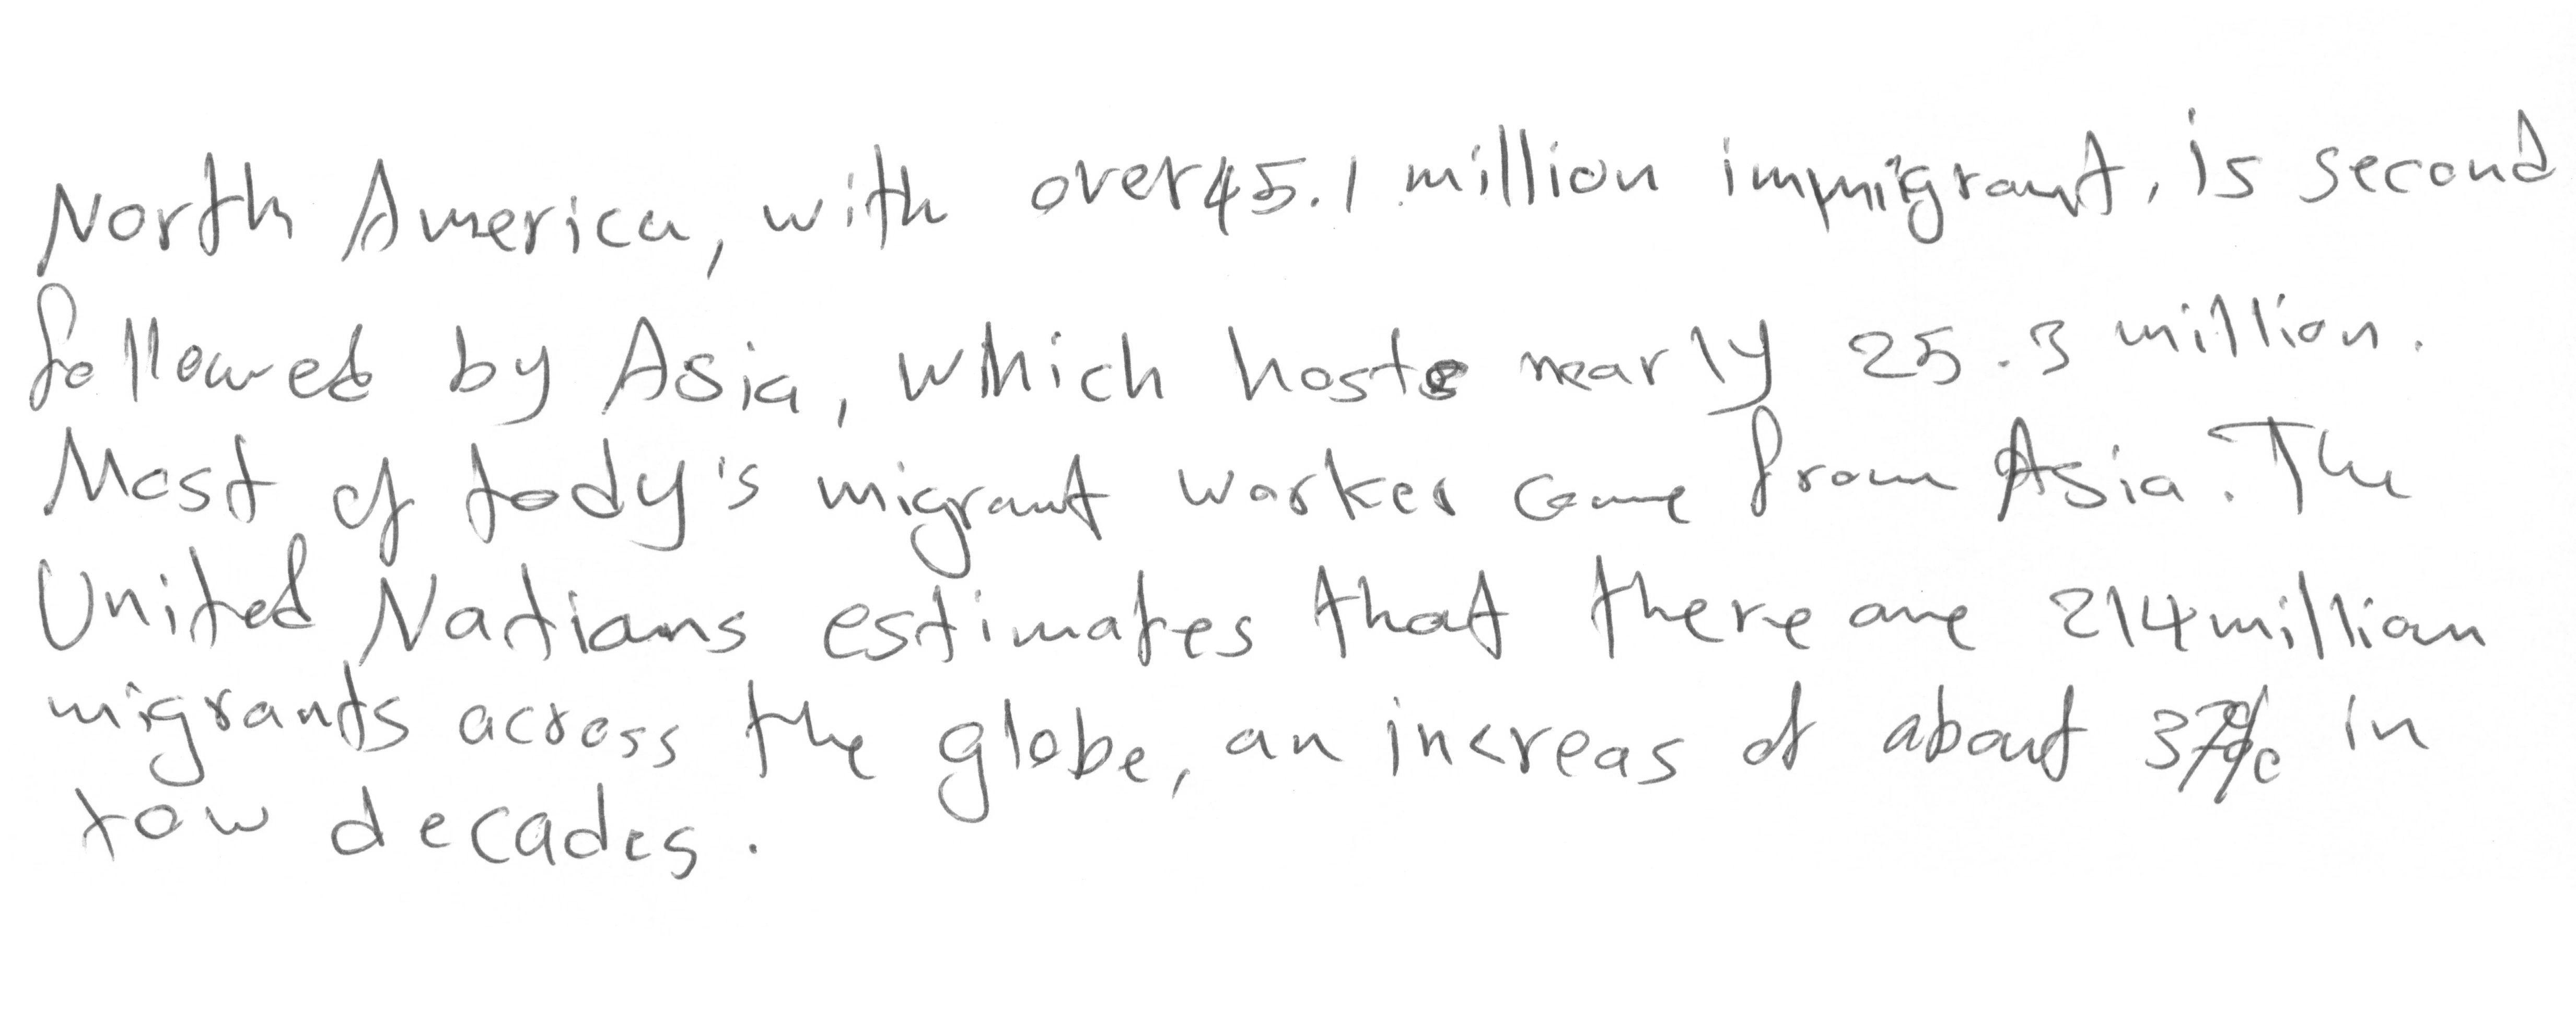 North America, with over 45.1 million immigrant, is second
followed by Asia, which hosts nearly 25.3 million.
Most of tody's migrant worker come from Asia. The
United Nations estimates that there are 214 million
migrants across the globe, an increas of about 37% in
tow decades.